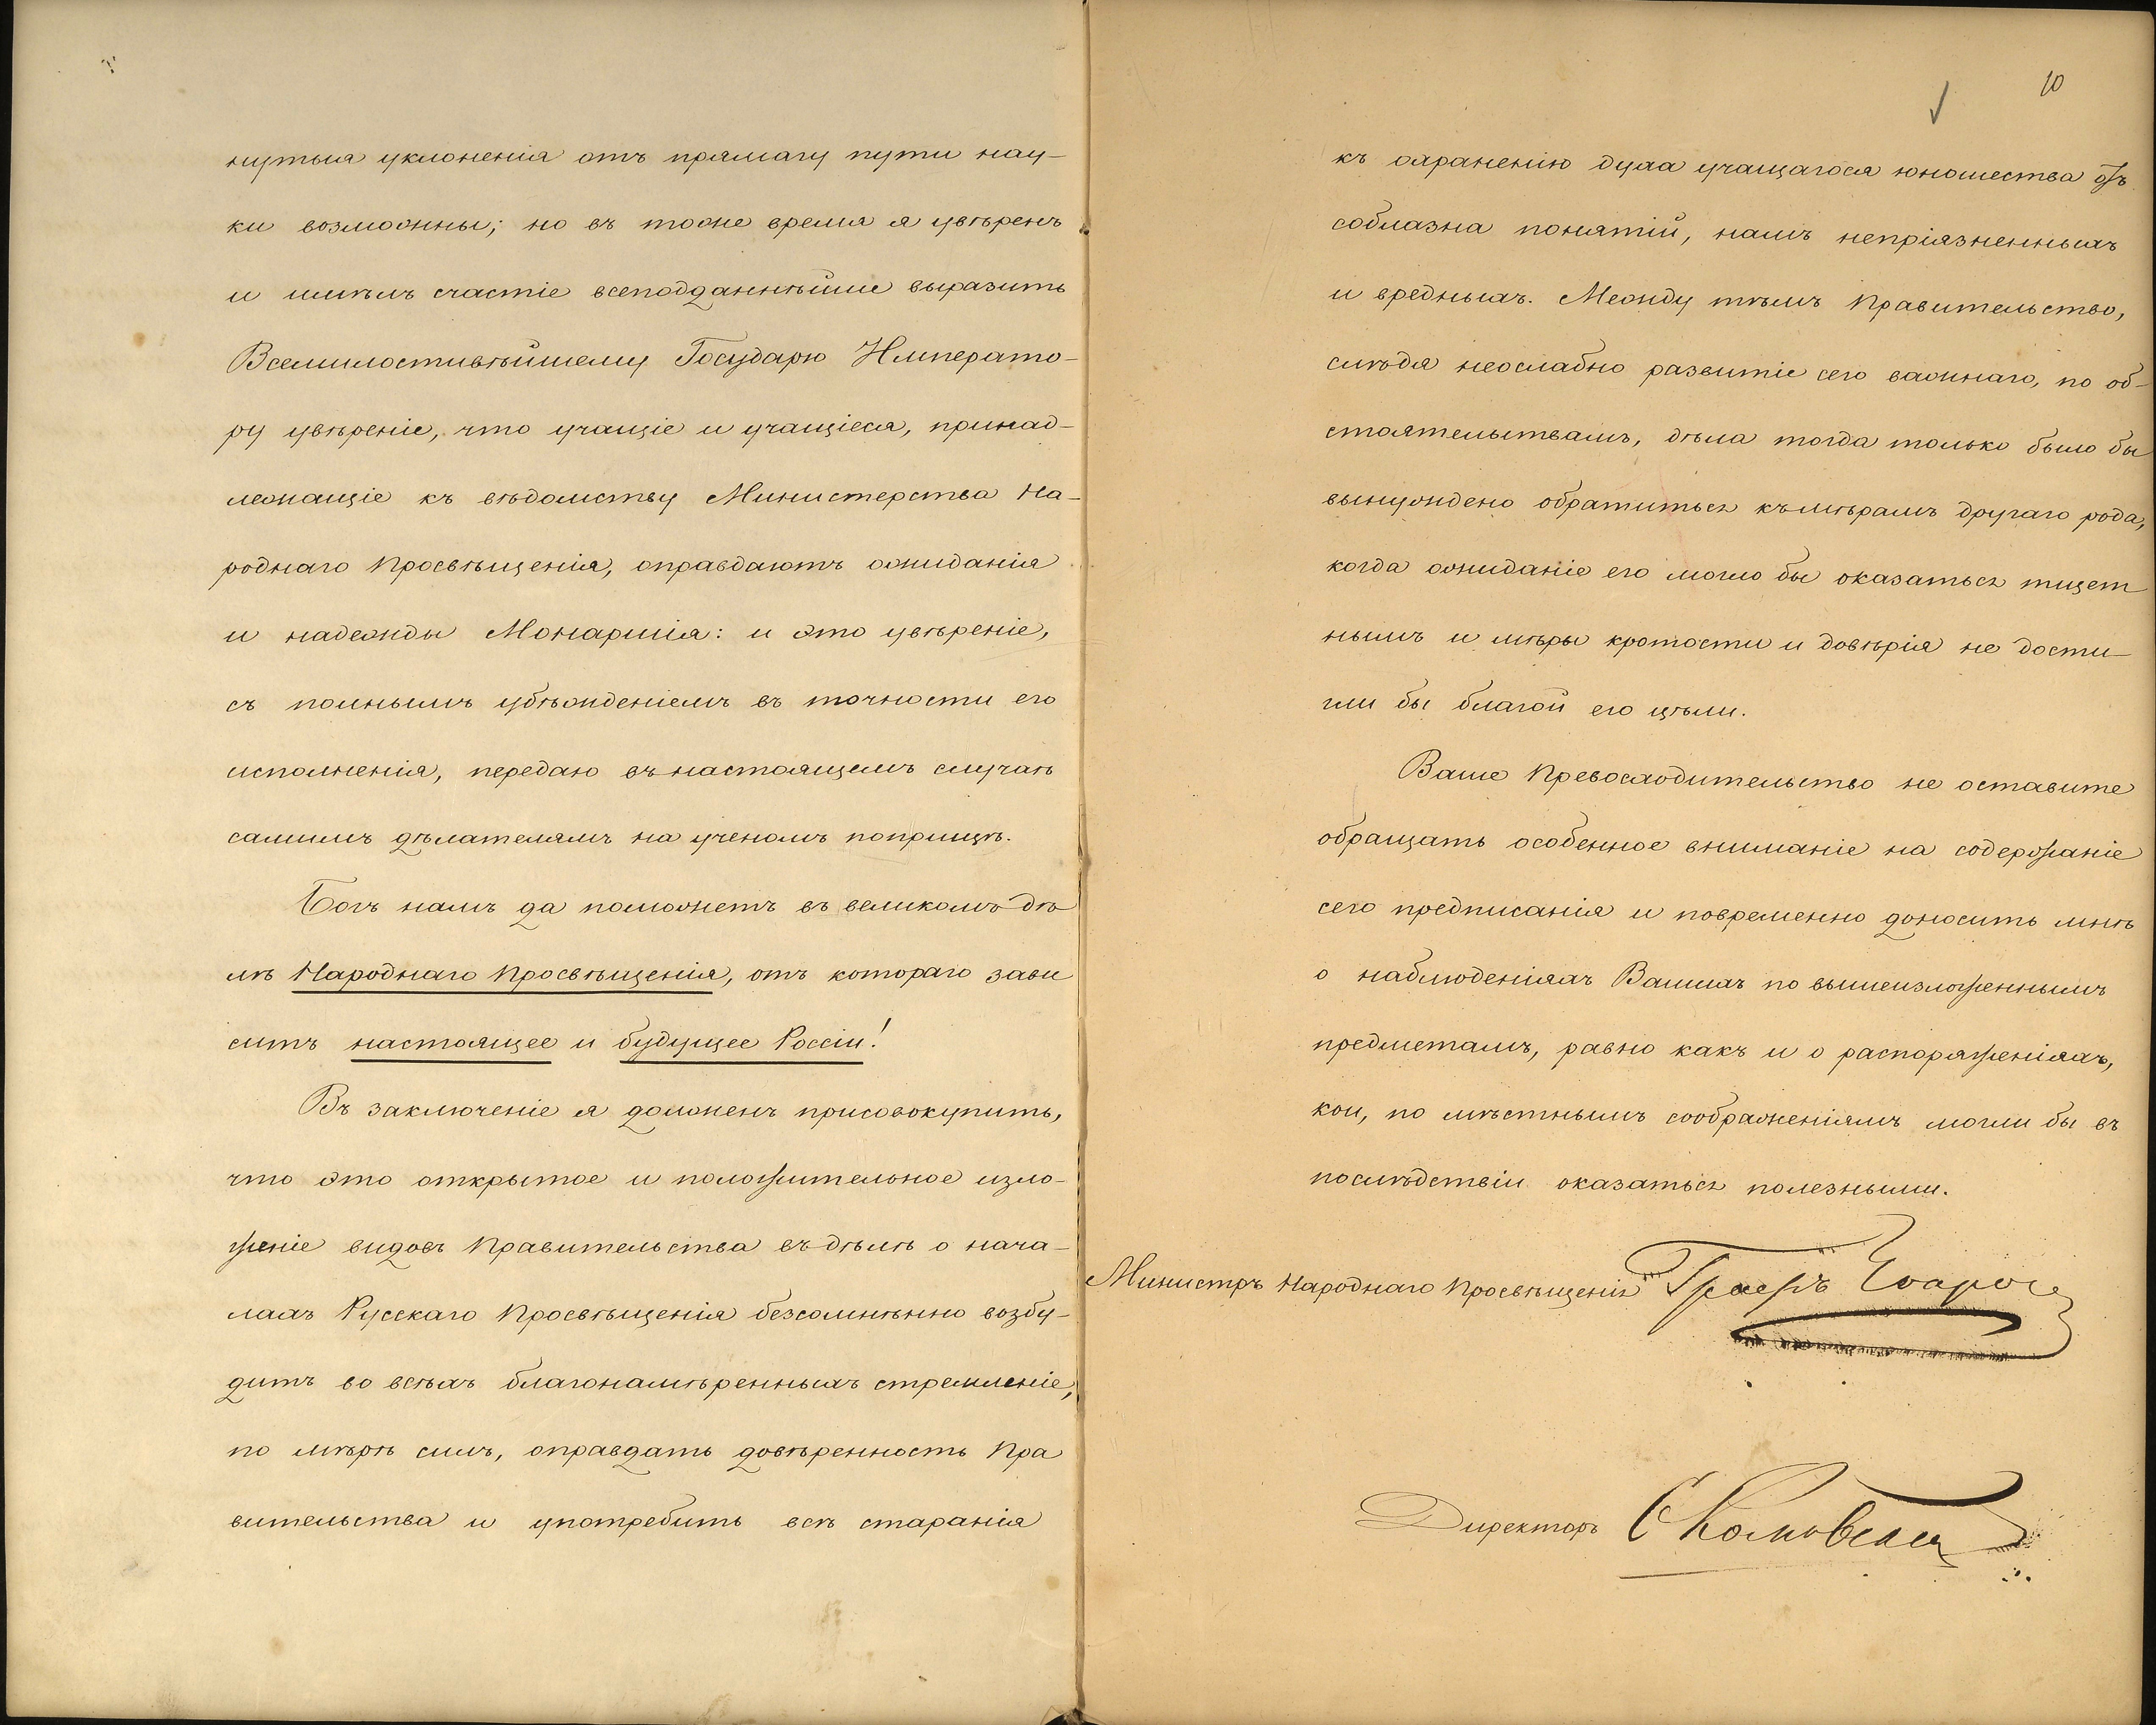 нутыя уклоненія отъ прямагу пути нау-
ки возможны; но въ тоже время я увѣренъ
и имѣлъ счастіе всеподданнѣйше выразить
Всемилостивѣйшему Государю Императо-
ру увѣреніе, что учащіе и учащіеся, принад-
лежащіе къ вѣдомству Министерства На-
роднаго Просвѣщенія, оправдаютъ ожиданія
и надежды Монаршія: и это увѣреніе,
съ полнымъ убѣжденіемъ въ точности его
исполненія, передаю въ настоящемъ случаѣ
самимъ дѣлателямъ на ученомъ поприщѣ.
Богъ намъ да поможетъ въ великомъ дѣ
лѣ Народнаго Просвѣщенія, отъ котораго зави
ситъ настоящее и будущее Россіи!
Въ заключеніе я долженъ присовокупить,
что это открытое и положительное изло-
женіе видовъ Правительства въ дѣлѣ о нача-
лахъ Русскаго Просвѣщенія безсомнѣнно возбу-
дитъ во всѣхъ благонамѣренныхъ стремленіе,
по мѣрѣ силъ, оправдать довѣренность Пра
вительства и употребить всѣ старанія
10
къ охраненію духа учащагося юношества отъ
соблазна понятій, намъ непріязненныхъ
и вредныхъ. Между тѣмъ Правительство,
слѣдя неослабно развитіе сего важнаго, по об-
стоятельствамъ, дѣла тогда только было бы
вынуждено обратиться къ мѣрамъ другаго рода,
когда ожиданіе его могло бы оказаться тщет
нымъ и мѣры кротости и довѣрія не дости-
гли бы благой его цѣли.
Ваше Превосходительство не оставите
обращать особенное вниманіе на содержаніе
сего предписанія и повременно доносить мнѣ
о наблюденіяхъ Вашихъ по вышеизложеннымъ
предметамъ, равно какъ и о распоряженіяхъ,
кои, по мѣстнымъ соображеніямъ могли бы въ
послѣдствіи оказаться полезными.
Министръ Народнаго Просвѣщенія Графъ Уваровъ
Директоръ